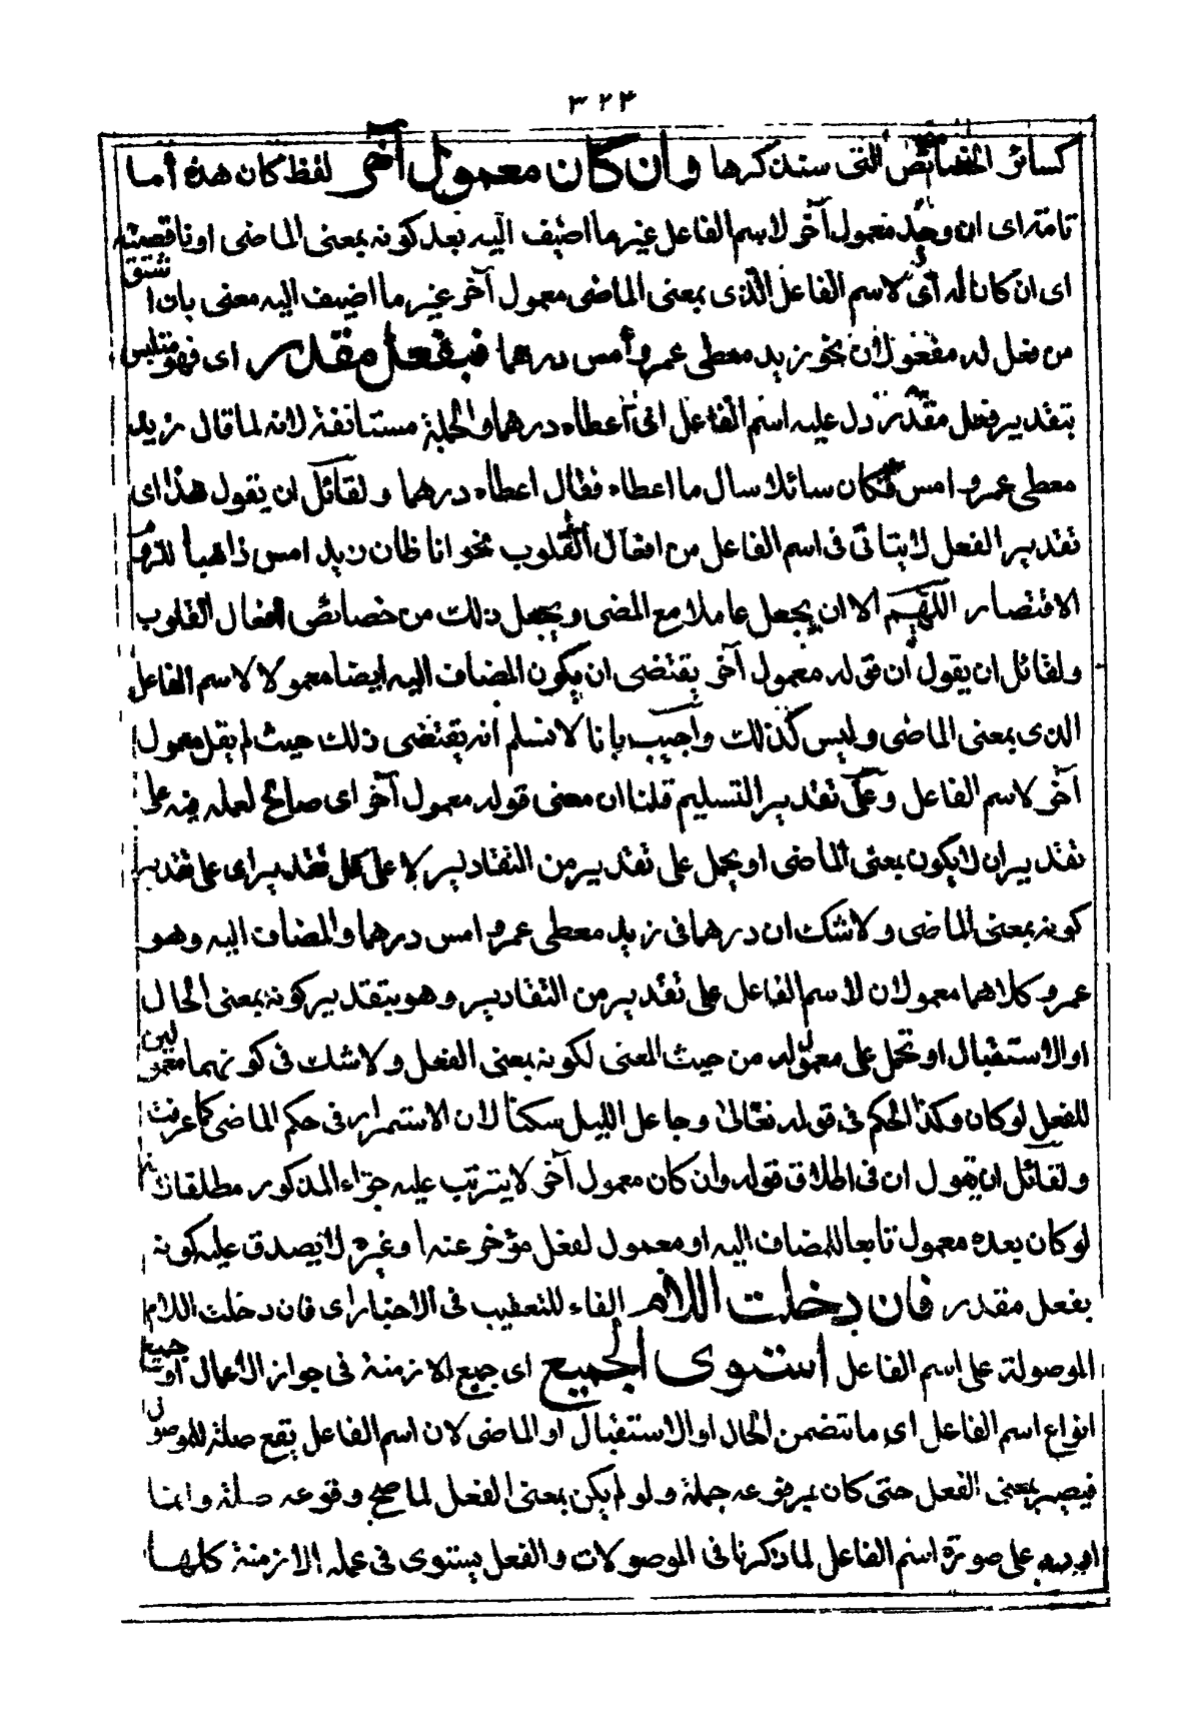 ٣٢٤
كسائر الخصائص التى سنذكرها وان كان معمول آخر لفظ كان هذه أما
تامة اى ان وجد معمول آخر لاسم الفاعل غير ما اضيف اليه بعد كونه بمعنى الماضى او ناقصة
اى ان كان له اى لاسم الفاعل الذى بمعنى الماضى معمول آخر غير ما اضيف اليه معنى بان اشتق
من فعل له مفعولان نحو زيد معطى عمرو أمس درهما فبفعل مقدر اى فهو متلبس
بتقدير فعل مقدر دل عليه اسم الفاعل اى أعطاه درهما والجملة مستانفة لانه لما قال زيد
معطى عمرو امس فكان سائلا سال ما اعطاه فقال اعطاه درهما ولقائل ان يقول هذا اى
تقدير الفعل لا يتاتى فى اسم الفاعل من افعال القلوب نحو انا ظان زيد امس ذاهبا للزوم
الاقتصار اللهم الا ان يجعل عاملا مع المضى ويجعل ذلك من خصائص افعال القلوب
ولقائل ان يقول ان قوله معمول آخر يقتضى ان يكون المضاف اليه ايضا معمولا لاسم الفاعل
الذى بمعنى الماضى وليس كذلك واجيب بانا لا نسلم انه يقتضى ذلك حيث لم يقل معمول
آخر لاسم الفاعل وعلى تقدير التسليم قلنا ان معنى قوله معمول آخر اى صالح لعمله فيه على
تقدير ان لا يكون بمعنى الماضى او يحمل على تقدير من التقادير لا على كل تقدير اى على تقدير
كونه بمعنى الماضى ولا شك ان درهما فى زيد معطى عمرو امس درهما والمضاف اليه وهو
عمرو كلاهما معمولان لاسم الفاعل على تقدير من التقادير وهو بتقدير كونه بمعنى الحال
او الاستقبال او تحمل على معموله من حيث المعنى لكونه بمعنى الفعل ولا شك فى كونهما معمولين
للفعل لو كان وكذا الحكم فى قوله تعالى وجاعل الليل سكنا لان الاستمرار فى حكم الماضى كما عرفت
ولقائل ان يقول ان فى اطلاق قوله وان كان معمول آخر لا يترتب عليه جزاء المذكور مطلقا فانه
لو كان بعده معمول تابعا للمضاف اليه او معمول لفعل مؤخر عنه او غيره لا يصدق عليه كونه
بفعل مقدر فان دخلت اللام الفاء للتعقيب فى الاخبار اى فان دخلت اللام
الموصولة على اسم الفاعل استوى الجميع اى جميع الازمنة فى جواز الاعمال او جميع
انواع اسم الفاعل اى ما تتضمن الحال او الاستقبال او الماضى لان اسم الفاعل يقع صلة للموصول
فيصير بمعنى الفعل حتى كان بمرفوعه جملة ولو لم يكن بمعنى الفعل لما صح وقوعه صلة وانما
على صورة اسم الفاعل لما ذكرنا فى الموصولات والفعل يستوى فى عمله الازمنة كلها